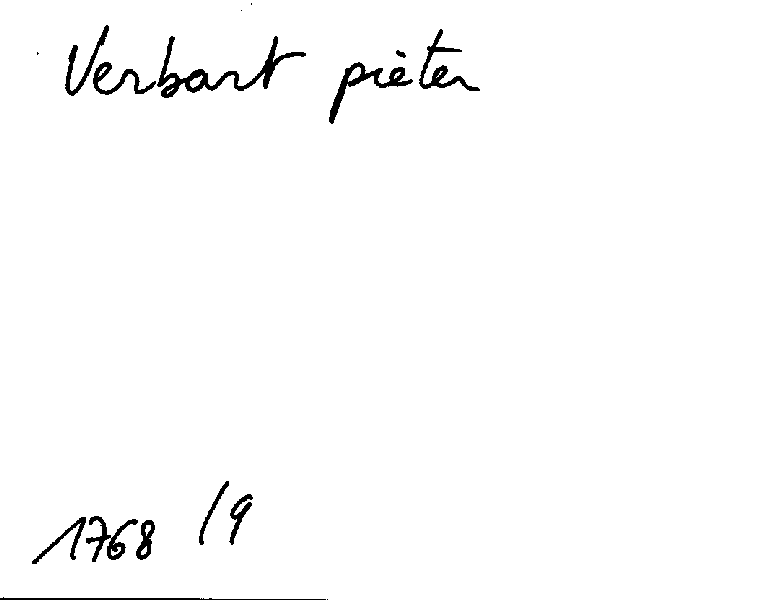 Verbart pieter
1768 /9